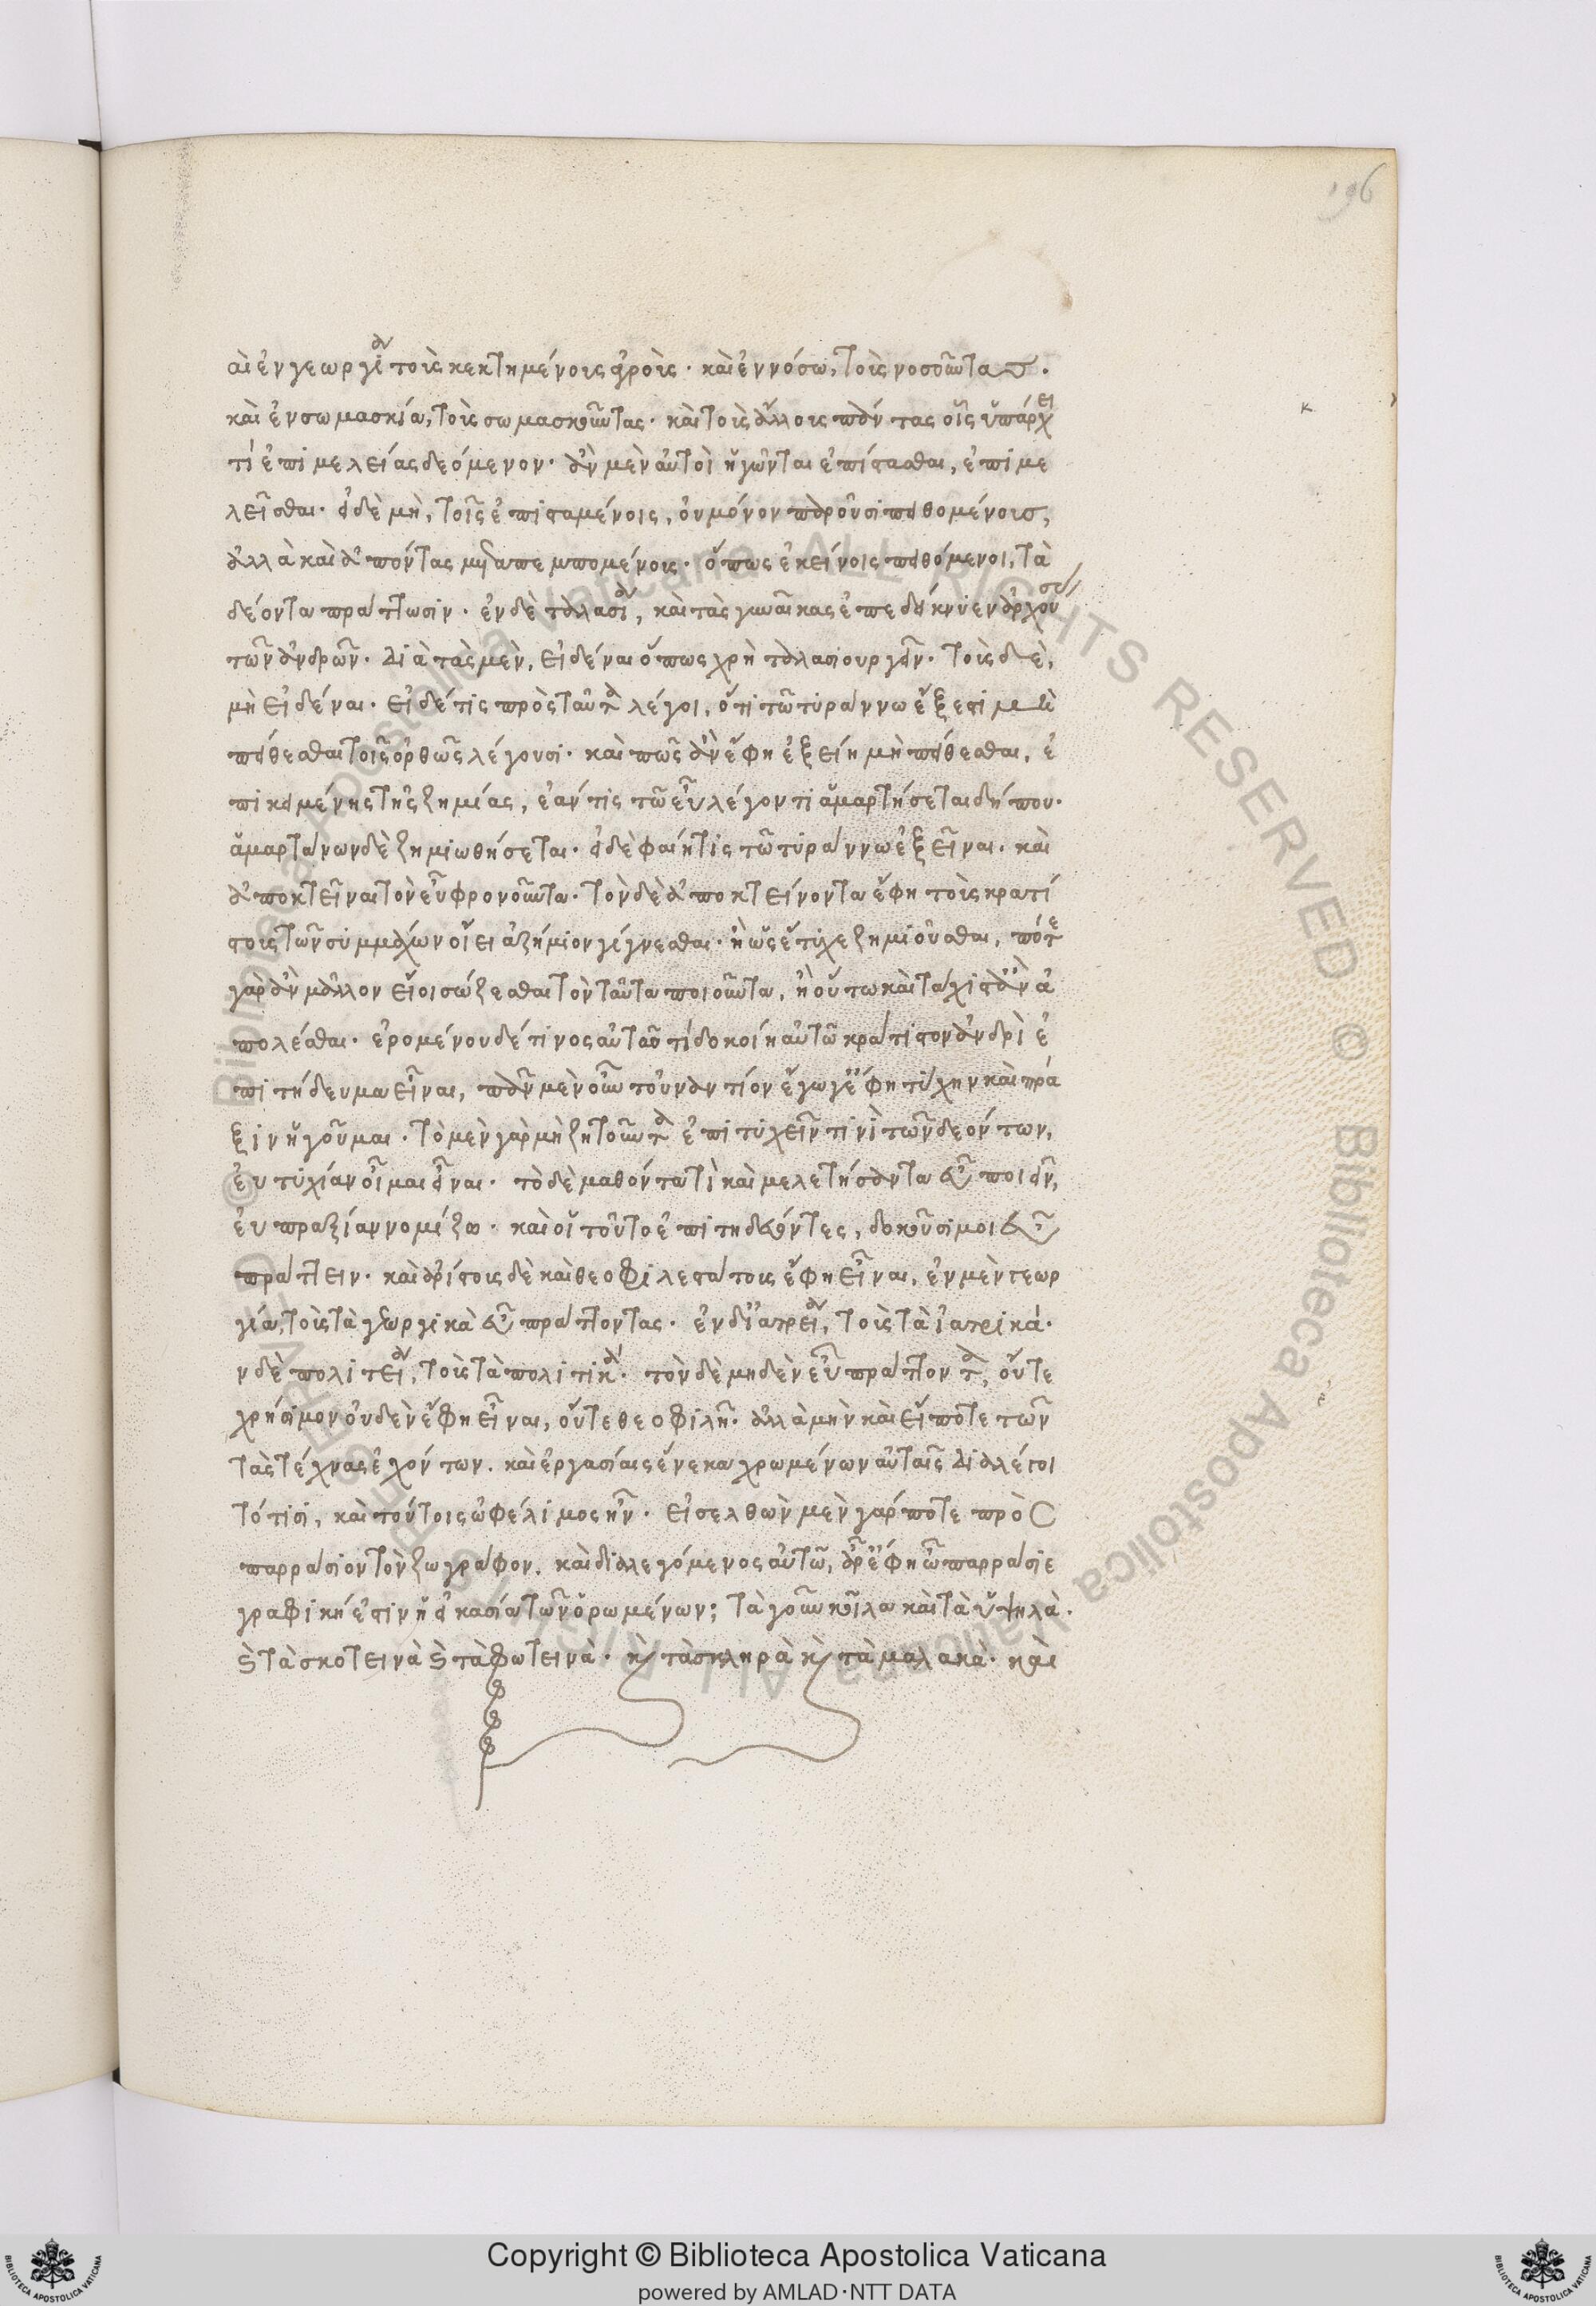 196
αὶ ἐν γεωργίαν τοῖς κεκτημένοις ἀγροῖς· καὶ ἐν νόσω, τοῖς νοσοῦντας.
καὶ ἐν σωμασκία, τοῖς σωμασκοῦντας· καὶ τοῖς ἄλλοις πάντας οἷς ὑπάρχει
τί ἐπιμελείας δεόμενον· ἂν μὲν αὐτοὶ ἡγῶνται ἐπίστασθαι, ἐπιμε
λεῖσθαι· εἰ δὲ μὴ, τοῖς ἐπισταμένοις, οὐ μόνον παροῦσι πειθομένοις,
ἀλλὰ καὶ ἀπόντας μεταπεμπομένοις· ὅπως ἐκείνοις πειθόμενοι, τὰ
δέοντα πράττωσιν· ἐν δὲ ταλασίαν, καὶ τὰς γυναῖκας ἐπεδείκνυεν ἀρχούσας
τῶν ἀνδρῶν· διὰ τὰς μὲν, εἰδέναι ὅπως χρὴ ταλασιουργεῖν· τοῖς δὲ,
μὴ εἰδέναι· εἰ δέ τις πρὸς ταῦτα λέγοι, ὅτι τῶ τυράννω ἔξεστι μὲ μὴ
πείθεσθαι τοῖς ὀρθῶς λέγουσι· καὶ πῶς ἂν ἔφη ἐξείη μὴ πείθεσθαι, ἐ
πικειμένης τῆς ζημίας, ἐάν τις τῶ εὖ λέγοντι ἁμαρτήσεται δήπου·
ἁμαρτάνων δὲ ζημιωθήσεται· εἰ δὲ φαίη τὶς τῶ τυράννω ἐξεῖναι· καὶ
ἀποκτεῖναι τὸν εὖ φρονοῦντα· τὸν δὲ ἀποκτείνοντα ἔφη τοῖς κρατί
στοις τῶν συμμάχων οἴει ἀζήμιον γίγνεσθαι· ἢ ὡς ἔτυχε ζημιοῦσθαι, πότε
γὰρ ἂν μᾶλλον εἴοι σώζεσθαι τὸν ταῦτα ποιοῦντα, ἢ οὕτω καὶ τάχιστ' ἂν ἀ
πολέσθαι· ἐρομένου δέ τινος αὐτοῦ τί δοκοίη αὐτῶ κράτιστον ἀνδρὶ ἐ
πιτήδευμα εἶναι, πᾶν μὲν οὖν τοὐναντίον ἔγωγ' ἔφη τύχην καὶ πρά
ξιν ἡγοῦμαι· τὸ μὲν γὰρ μὴ ζητοῦντα ἐπιτυχεῖν τινὶ τῶν δεόντων,
εὐτυχίαν οἶμαι εἶναι· τὸ δὲ μαθόντα τὶ καὶ μελετήσαντα εὖ ποιεῖν,
εὐπραξίαν νομίζω· καὶ οἱ τοῦτο ἐπιτηδεύοντες, δοκοῦσι μοι εὖ
πράττειν· καὶ ἀρίστοις δὲ καὶ θεοφιλεστάτοις ἔφη εἶναι, ἐν μὲν γεωρ
γία, τοῖς τὰ γεωργικὰ εὖ πράττοντας· ἐν δ' ἰατρείαν, τοῖς τὰ ἰατρικά·
ν δὲ πολιτείαν, τοῖς τὰ πολιτικά· τὸν δὲ μηδὲν εὖ πράττοντα, οὔτε
χρήσιμον οὐδὲν ἔφη εἶναι, οὔτε θεοφιλῆ· ἀλλὰ μὴν καὶ εἴποτε τῶν
τὰς τέχνας ἐχόντων. καὶ ἐργασίαις ἕνεκα χρωμένων αὐταῖς διαλέγοι
τό τισί, καὶ τούτοις ὠφέλιμος ἦν· εἰσελθὼν μὲν γάρ ποτε πρὸς
παρράσιον τὸν ζωγράφον. καὶ διαλεγόμενος αὐτῶ, ἆρ' ἔφη ὦ παρράσιε
γραφική ἐστιν ἡ εἰκασία τῶν ὁρωμένων; τὰ γοῦν κοῖλα καὶ τὰ ὑψηλὰ.
καὶ τὰ σκοτεινὰ καὶ τὰ φωτεινὰ· καὶ τὰ σκληρὰ καὶ τὰ μαλακὰ· καὶ
Copyright © Biblioteca Apostolica Vaticana
powered by AMLAD·NTT DATA